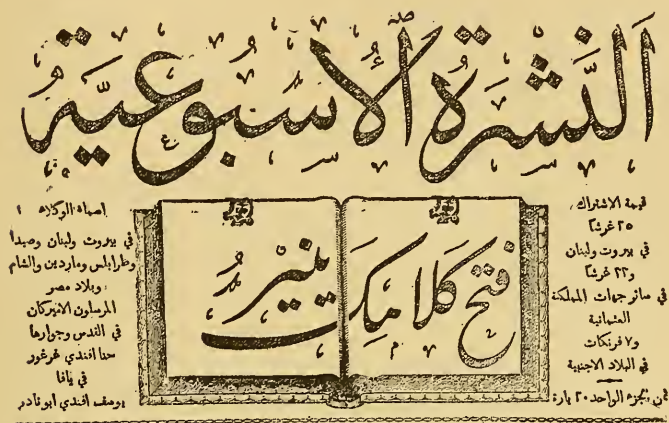 النَّشرَةُ الأُسبُوعيَّةُ
قيمة الاشتراك
٢٥ غرشًا
في بيروت ولبنان
و٢٢ غرشًا
في سائر جهات المملكة
العثمانية
و٧ فرنكات
في البلاد الاجنبية
ثمن الجزء الواحد ٢٠ بارة
فتح كلامك ينير
اسماء الوكلاء
في بيروت ولبنان وصيدا
وطرابلس وماردين والشام
وبلاد مصر
المرسلون الاميركان
في القدس وجوارها
حنا افندي غرغور
في يافا
يوسف افندي ابو نادر